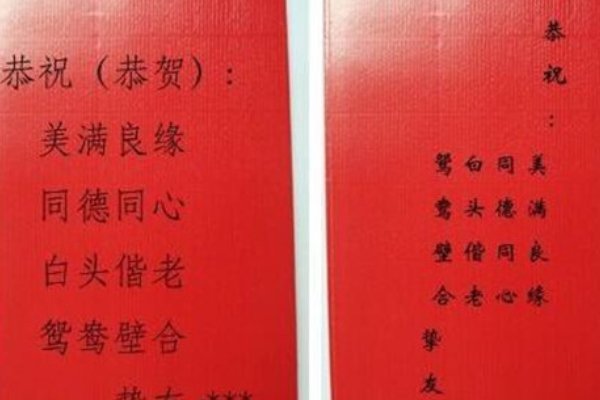 恭祝（恭贺）：
美满良缘
同德同心
白头偕老
鸳鸯壁合
挚友 ***
恭祝：
美满良缘
同德同心
白头偕老
鸳鸯壁合
挚友